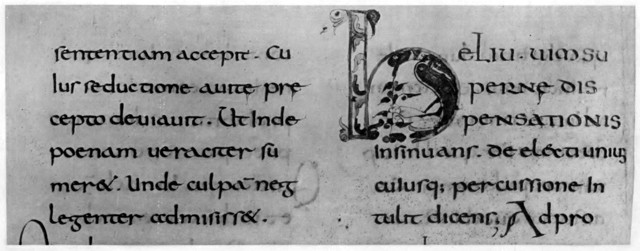 sententiam accepit. Cu
ius seductione a uite pre
cepto deuiauit. Ut inde
poenam ueraciter su
meret. Unde culpā neg
legenter admisisset.
HELIU. uim su
PERNĘ DIS
PENSATIONIS
insinuans. de electi unius
cuiusq; percussione in
tulit dicens; Ad pro